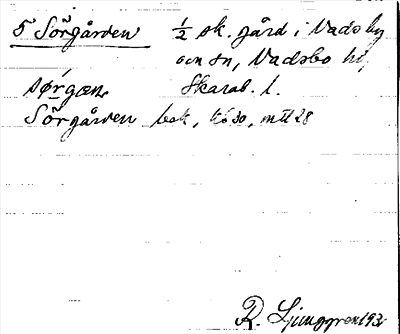 5 Sörgården ½ sk. gård i Vadsby
och sn, Vadsbo hd,
sørgæn Skarab. l.
Sörgården bok, Kö 30, mtl 28
R. Ljunggren 193